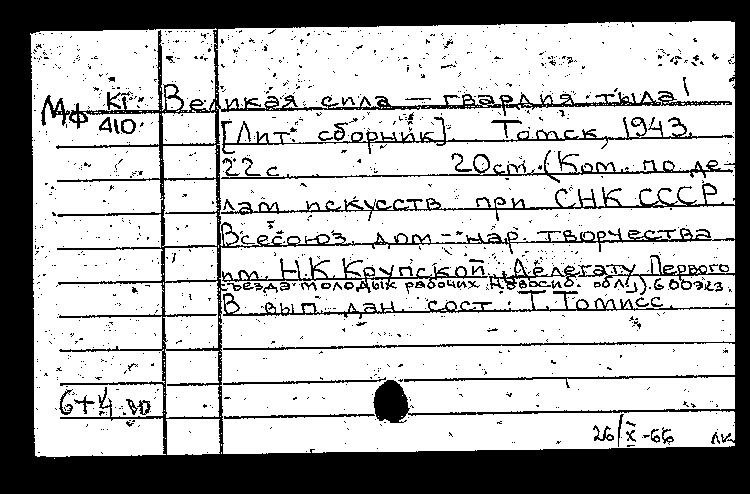 Мф К1/410 Великая сила – гвардия тыла!
[Лит. сборник]. Томск, 1943.
22с. 20см. (Ком. по де-
лам искусств при СНК СССР.
Всесоюз. дом нар. творчества
им. Н.К. Крупской. Делегату Первого
съезда молодых рабочих Новосиб. обл.). 600экз.
В вып. дан. сост.: Т. Томисс.
26/X-66 лк